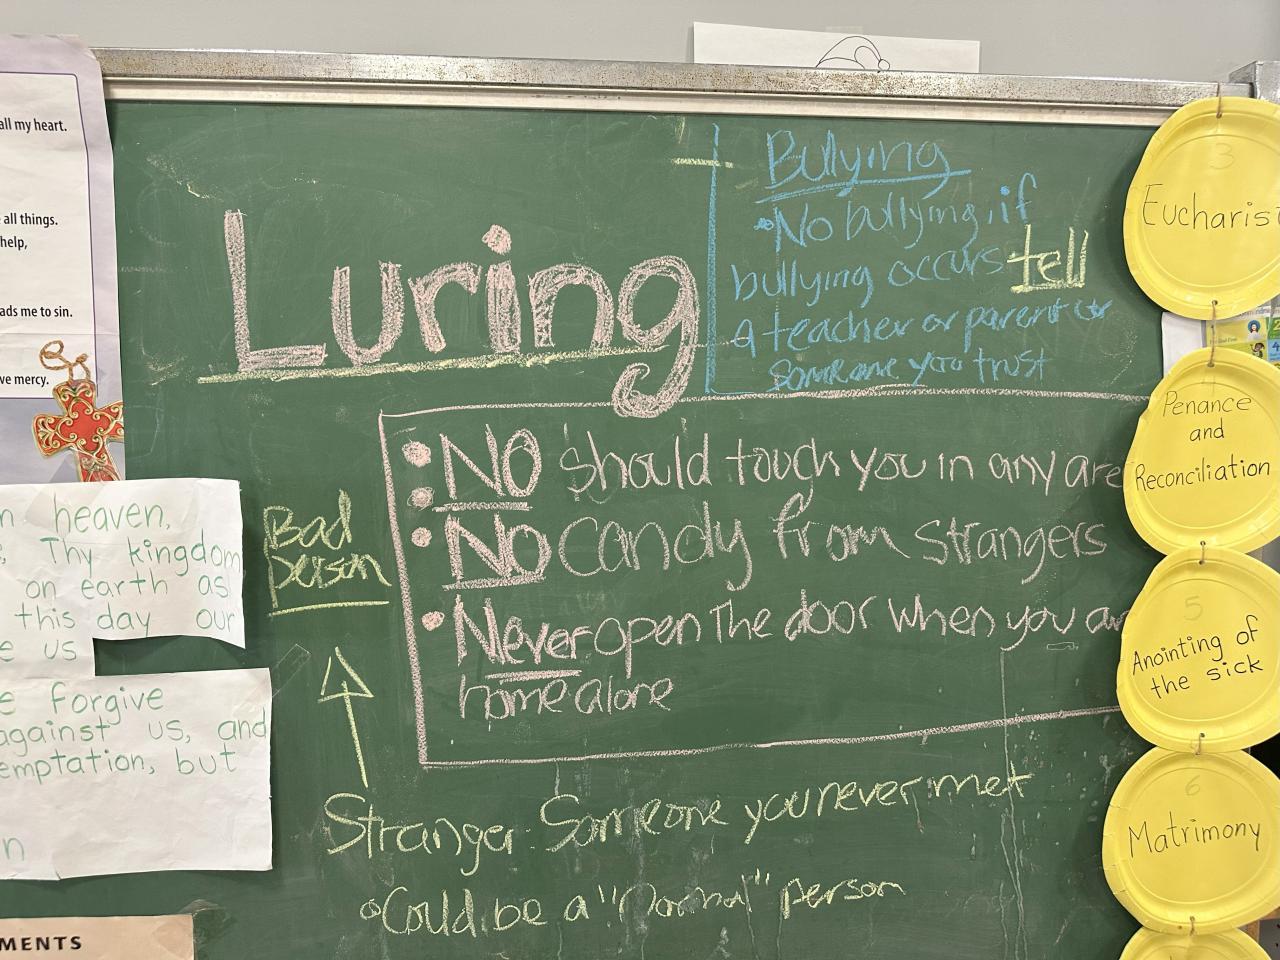 all my heart.
all things.
help,
ads me to sin.
ve mercy.
n heaven,
Thy kingdom
on earth as
this day our
e us
e forgive
against us, and
emptation, but
n
MENTS
Luring
Bullying
•No bullying, if
bullying occurs tell
a teacher or parent or
someone you trust
• NO should touch you in any are
• No candy from strangers
• Never open the door when you ar
home alone
Bad
person
Stranger: Someone you never met
Could be a "Normal" person
3
Eucharis
Penance
and
Reconciliation
5
Anointing of
the sick
6
Matrimony